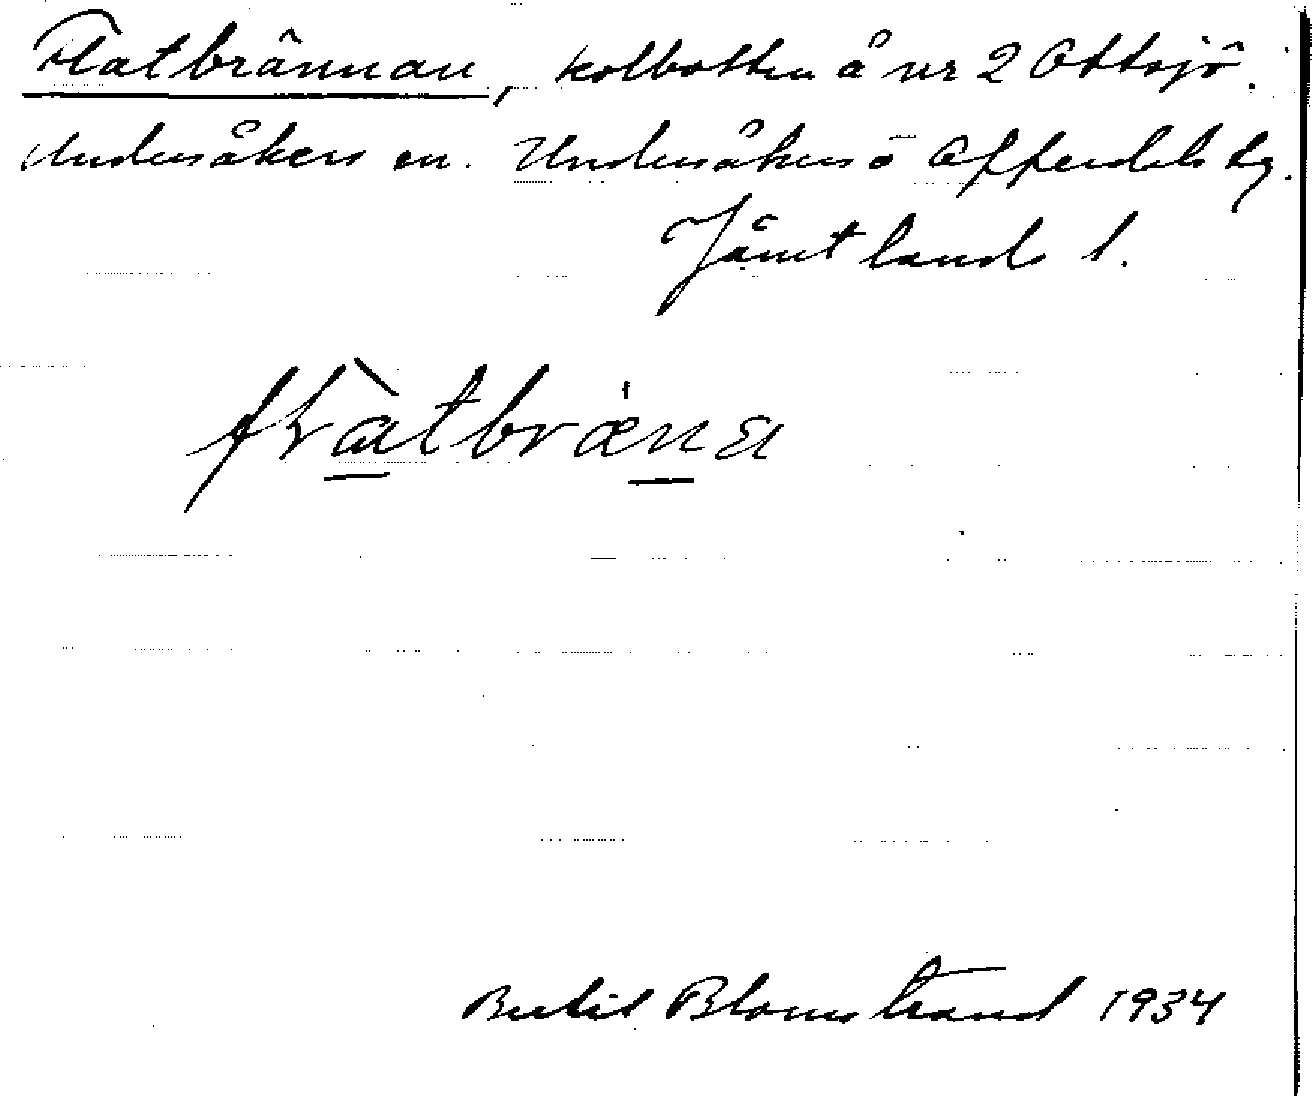 Flatbrännan, kolbotten å nr 2 Ottsjö.
Undersåkers sn. Undersåkers o Offerdals tg.
Jämtland l.
Bertil Blomstrand 1934